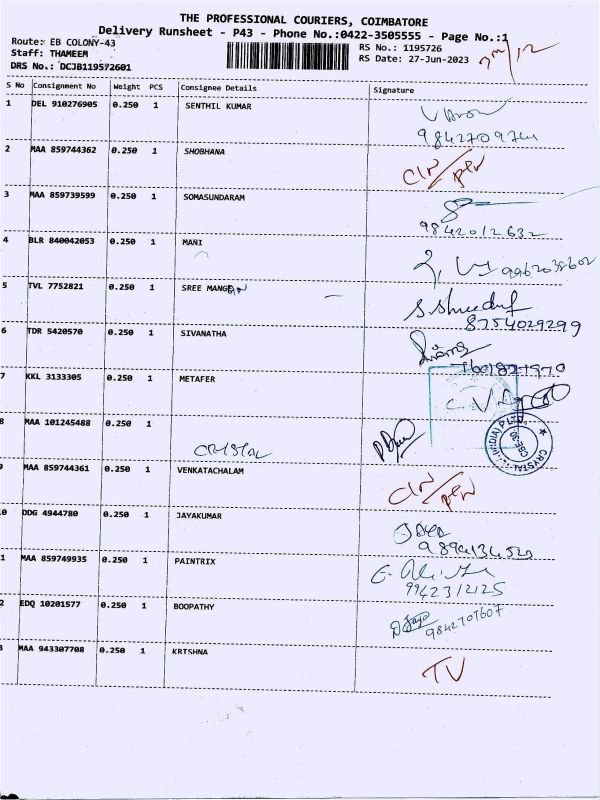 THE PROFESSIONAL COURIERS, COIMBATORE
Delivery Runsheet - P43 - Phone No.:0422-3505555 - Page No.:1
Route: EB COLONY-43
RS No.: 1195726
Staff: THAMEEM
RS Date: 27-Jun-2023
DRS No.: DCJB119572601
S No Consignment No Weight PCS Consignee Details Signature
1 DEL 910276905 0.250 1 SENTHIL KUMAR
2 MAA 859744362 0.250 1 SHOBHANA
3 MAA 859739599 0.250 1 SOMASUNDARAM
9842012632
4 BLR 840042053 0.250 1 MANI
5 TVL 7752821 0.250 1 SREE
8754029299
6 TDR 5420570 0.250 1 SIVANATHA
7 KKL 3133305 0.250 1 METAFER
8 MAA 101245488 0.250 1
CRYSTAL
CRYSTAL (INDIA)
9 MAA 859744361 0.250 1 VENKATACHALAM
0 DDG 4944780 0.250 1 JAYAKUMAR
1 MAA 859749935 0.250 1 PAINTRIX
9942312125
2 EDQ 10201577 0.250 1 BOOPATHY
9842707607
3 MAA 943307708 0.250 1 KRISHNA
TV